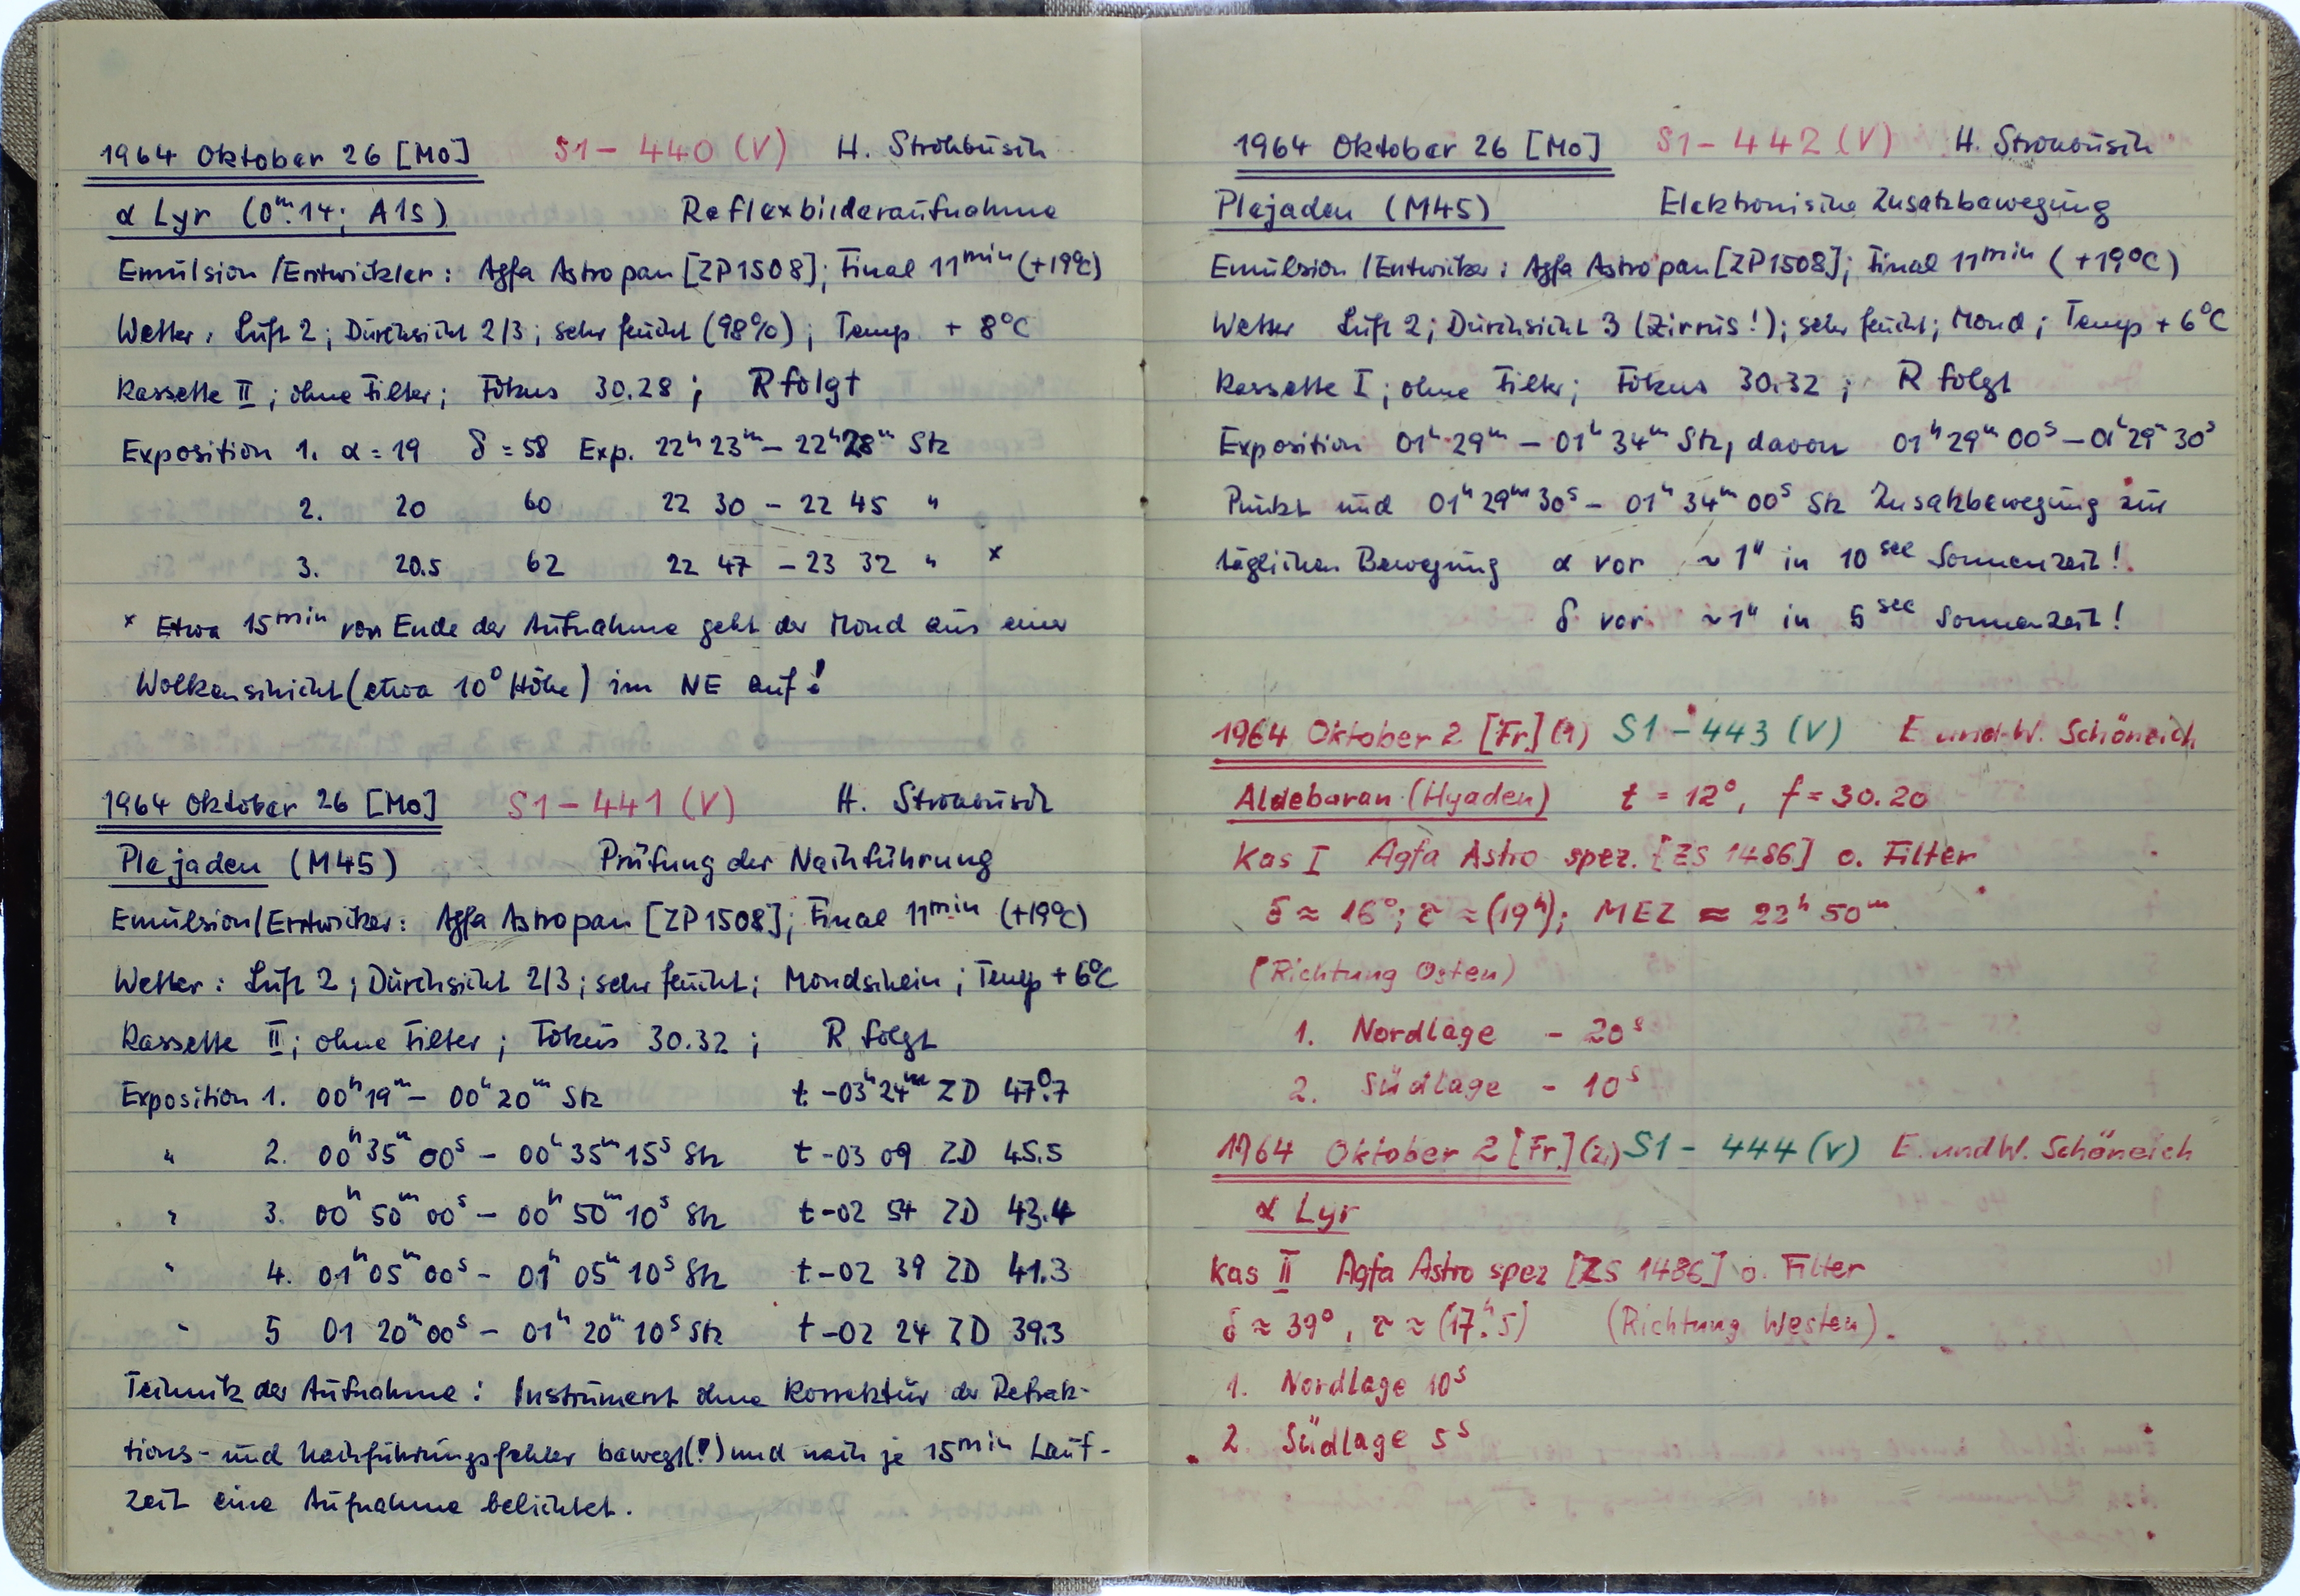 1964 Oktober 26 [Mo] S1-440 (V) H. Strohbusch
α Lyr (0ᵐ.14; A1s) Reflexbilderaufnahme
Emulsion/Entwickler: Agfa Astropan [ZP1508]; Final 11ᵐⁱⁿ (+19°C)
Wetter: Luft 2; Durchsicht 2/3; sehr feucht (98%); Temp. + 8°C
Kassette II; ohne Filter; Fokus 30.28; R folgt
Exposition 1. α = 19 δ = 58 Exp. 22ʰ 23ᵐ – 22ʰ 28ᵐ Stz
2. 20 60 22 30 – 22 45 "
3. 20.5 62 22 47 – 23 32 " x
x Etwa 15ᵐⁱⁿ vor Ende der Aufnahme geht der Mond aus einer
Wolkenschicht (etwa 10° Höhe) im NE auf!
1964 Oktober 26 [Mo] S1-441 (V) H. Strohbusch
Plejaden (M45) Prüfung der Nachführung
Emulsion/Entwickler: Agfa Astropan [ZP1508]; Final 11ᵐⁱⁿ (+19°C)
Wetter: Luft 2; Durchsicht 2/3; sehr feucht; Mondschein; Temp + 6°C
Kassette II; ohne Filter; Fokus 30.32; R folgt
Exposition 1. 00ʰ 19ᵐ – 00ʰ 20ᵐ Stz t -03ʰ 24ᵐ ZD 47°.7
" 2. 00ʰ 35ᵐ 00ˢ – 00ʰ 35ᵐ 15ˢ Stz t -03 09 ZD 45.5
" 3. 00ʰ 50ᵐ 00ˢ – 00ʰ 50ᵐ 10ˢ Stz t -02 54 ZD 43.4
" 4. 01ʰ 05ᵐ 00ˢ – 01ʰ 05ᵐ 10ˢ Stz t -02 39 ZD 41.3
" 5 01 20ᵐ 00ˢ – 01ʰ 20ᵐ 10ˢ Stz t -02 24 ZD 39.3
Technik der Aufnahme: Instrument ohne Korrektur der Refrak-
tions- und Nachführungsfehler bewegt(!) und nach je 15ᵐⁱⁿ Lauf-
zeit eine Aufnahme belichtet.
1964 Oktober 26 [Mo] S1-442 (V) H. Strohbusch
Plejaden (M45) Elektronische Zusatzbewegung
Emulsion/Entwickler: Agfa Astropan [ZP1508]; Final 11ᵐⁱⁿ (+19°C)
Wetter Luft 2; Durchsicht 3 (Zirrus!); sehr feucht; Mond; Temp + 6°C
Kassette I; ohne Filter; Fokus 30.32; R folgt
Exposition 01ʰ 29ᵐ – 01ʰ 34ᵐ Stz, davon 01ʰ 29ᵐ 00ˢ – 01ʰ 29ᵐ 30ˢ
Punkt und 01ʰ 29ᵐ 30ˢ – 01ʰ 34ᵐ 00ˢ Stz Zusatzbewegung zur
täglichen Bewegung α vor ~1" in 10ˢᵉᶜ Sonnenzeit!
δ vor ~1" in 5ˢᵉᶜ Sonnenzeit!
1964 Oktober 2 [Fr.] (1) S1-443 (V) E und W. Schöneich
Aldebaran (Hyaden) t = 12°, f = 30.20
Kas I Agfa Astro spez. [ZS 1486] o. Filter
δ ≈ 16°; τ ≈ (19ʰ); MEZ ≈ 22ʰ 50ᵐ
(Richtung Osten)
1. Nordlage – 20ˢ
2. Südlage – 10ˢ
1964 Oktober 2 [Fr.] (2.) S1-444 (V) E. und W. Schöneich
α Lyr
Kas II Agfa Astro spez [ZS 1486] o. Filter
δ ≈ 39°, τ ≈ (17ʰ.5) (Richtung Westen).
1. Nordlage 10ˢ
2. Südlage 5ˢ